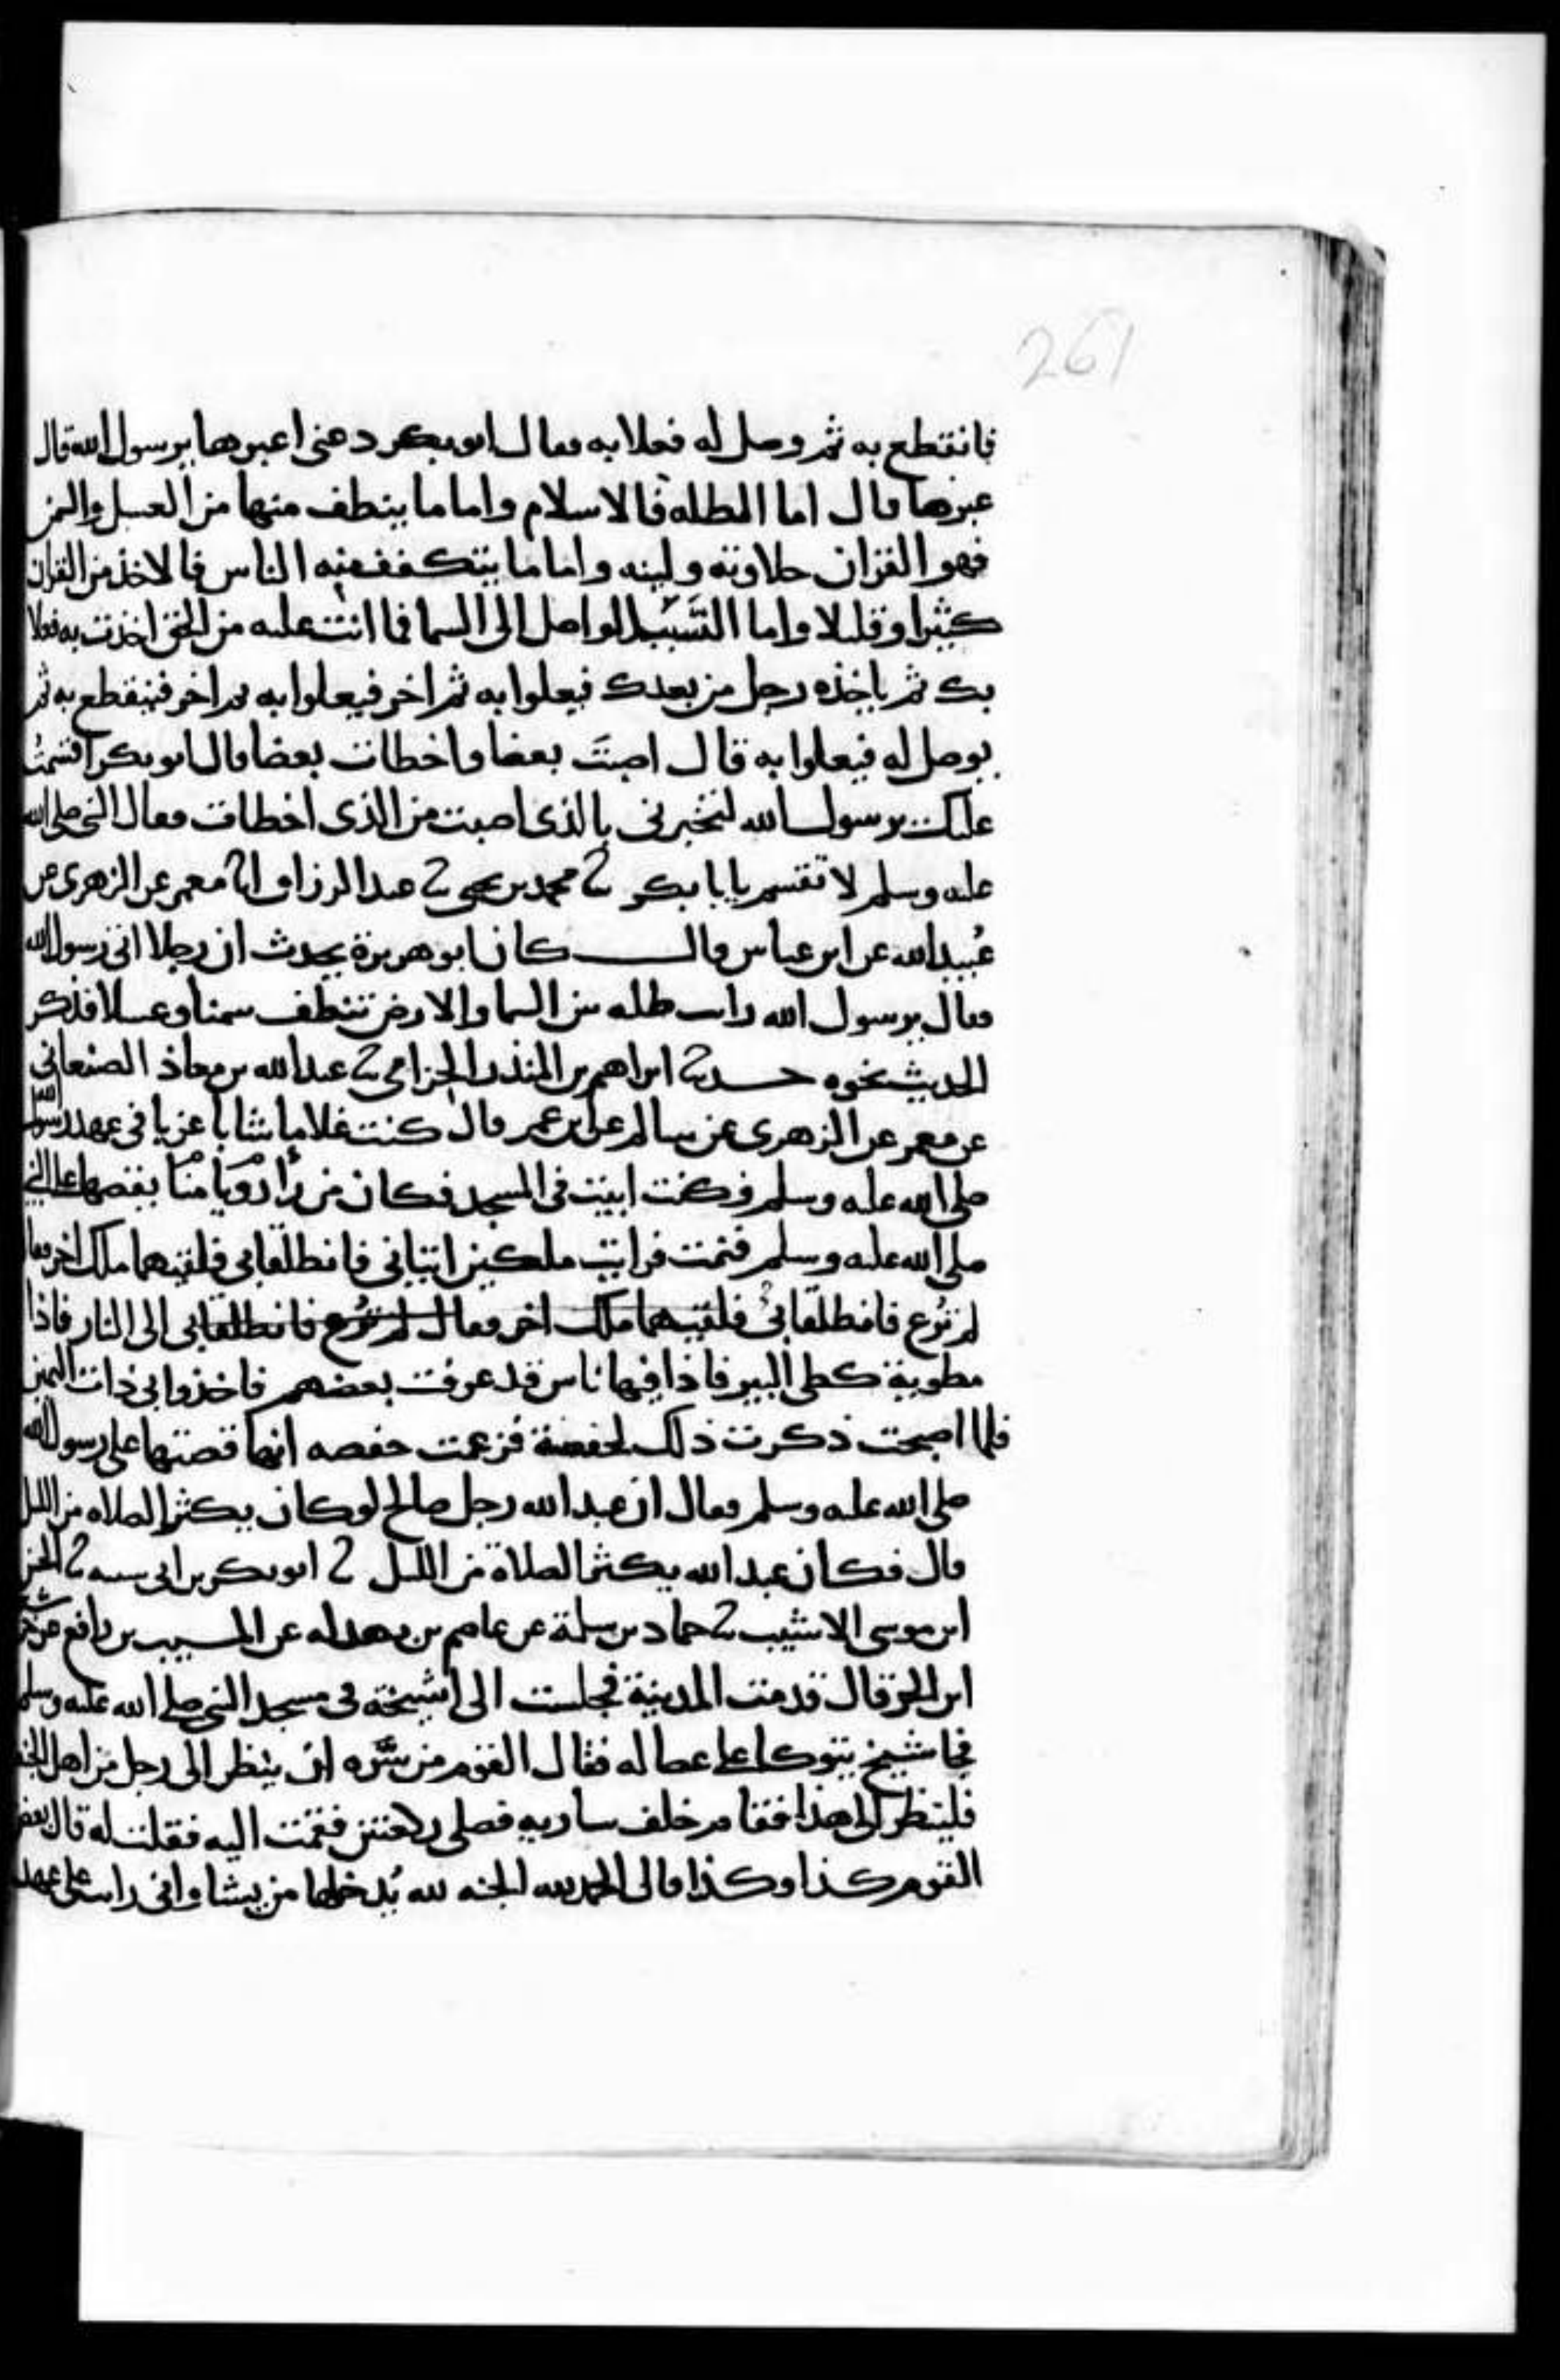 261
فانقطع به ثم وصل له فعلا به فقال ابو بكر دعني اعبرها يرسول الله قال
عبرها قال اما الظله فالاسلام واما ما ينطف منها من العسل والسمن
فهو القران حلاوته ولينه واما ما يتكفف منه الناس فالاخذ من القران
كثيرا وقليلا واما السبب الواصل الى السما فما انت عليه من الحق اخذت به فعلا
بك ثم ياخذه رجل من بعدك فيعلوا به ثم اخر فيعلوا به ثم اخر فينقطع به ثم
يوصل له فيعلوا به قال اصبتَ بعضا واخطات بعضا قال ابو بكر اقسمتُ
عليك يرسول الله لتخبرني بالذي اصبت من الذي اخطات فقال النبي صلى الله
عليه وسلم لا تقسم يابا بكر ثنا محمد بن يحيى ثنا عبد الرزاق انا معمر عن الزهري عن
عُبيد الله عن ابن عباس قال كان ابو هريرة يحدث ان رجلا اتى رسول الله
فقال يرسول الله رايت ظله بين السما والارض تنطف سمنا وعسلا فذكر
الحديث نحوه حدثنا ابراهيم بن المنذر الحزامي ثنا عبد الله بن معاذ الصنعاني
عن معمر عن الزهري عن سالم عن ابن عمر قال كنت غلاما شابا عزبا في عهد رسول الله
صلى الله عليه وسلم فكنت ابيت في المسجد فكان من رأ رويا منا يقصها على النبي
صلى الله عليه وسلم فنمت فرايت ملكين اتياني فانطلقا بي فلقيهما ملك اخر فقال
لم تُرع فانطلقا بي فلقيهما ملك اخر فقال لم تُرع فانطلقا بي الى النار فاذا
مطوية كطي البير فاذا فيها ناس قد عرفت بعضهم فاخذوا بي ذات اليمين
فلما اصبحت ذكرت ذلك لحفصة فزعمت حفصه انها قصتها على رسول الله
صلى الله عليه وسلم فقال ان عبد الله رجل صالح لو كان يكثر الصلاه من الليل
قال فكان عبد الله يكثر الصلاة من الليل ثنا ابو بكر بن ابي شيبه ثنا الحسن
ابن موسى الاشيب ثنا حماد بن سلمة عن عاصم بن بهدله عن المسيب بن رافع عن خرشة
ابن الحر قال قدمت المدينة فجلست الى اشيخة في مسجد النبي صلى الله عليه وسلم
فجا شيخ يتوكا على عصا له فقال القوم من سَّره ان ينظر الى رجل من اهل الجنة
فلينظر الى هذا فقام خلف ساريه فصلى ركعتين فقمت اليه فقلت له قال بعض
القوم كذا وكذا قال الحمد لله الجنه لله يُدخلها من يشا واني رايت على عهد